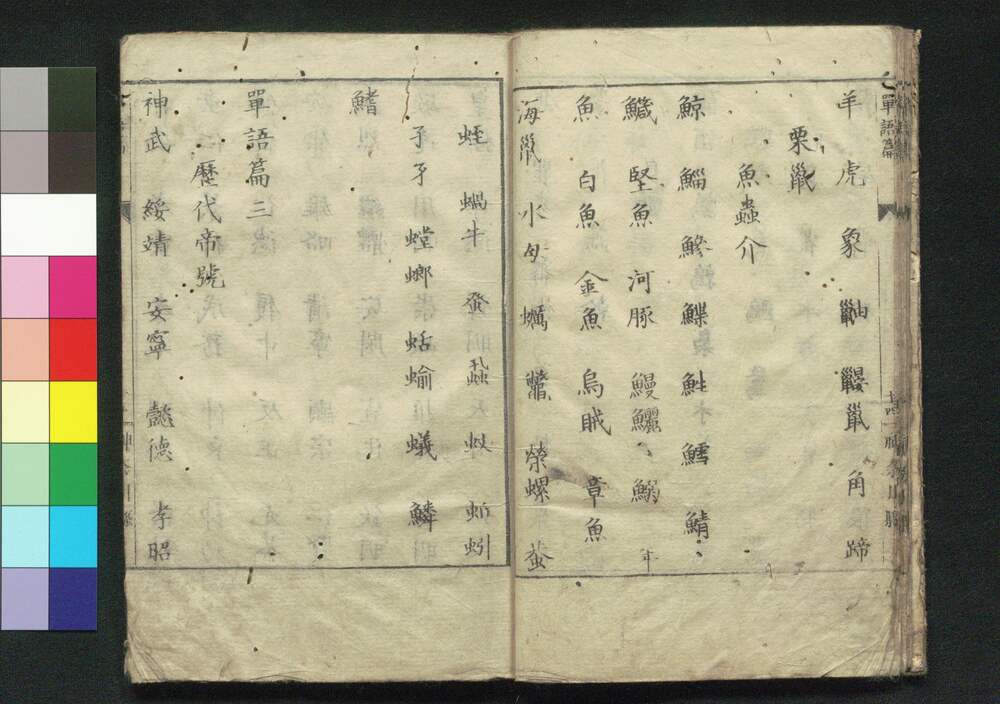 羊 虎 象 鼬 鼹鼠 角 蹄
栗鼠
魚蟲介
鯨 鯔 鰺 鰈 鮏 鱈 鯖
鱵 堅魚 河豚 鰻鱺 鰯
魚 白魚 金魚 烏賊 章魚
海鼠 水母 蠣 鼈 榮螺 蚕
蛭 蝸牛 蚤 蝨 蚊 蚯蚓
孑孑 螳螂 蛞蝓 蟻 鱗
鰭
單語篇三
歷代帝號
神武 綏靖 安寧 懿德 孝昭
單語篇